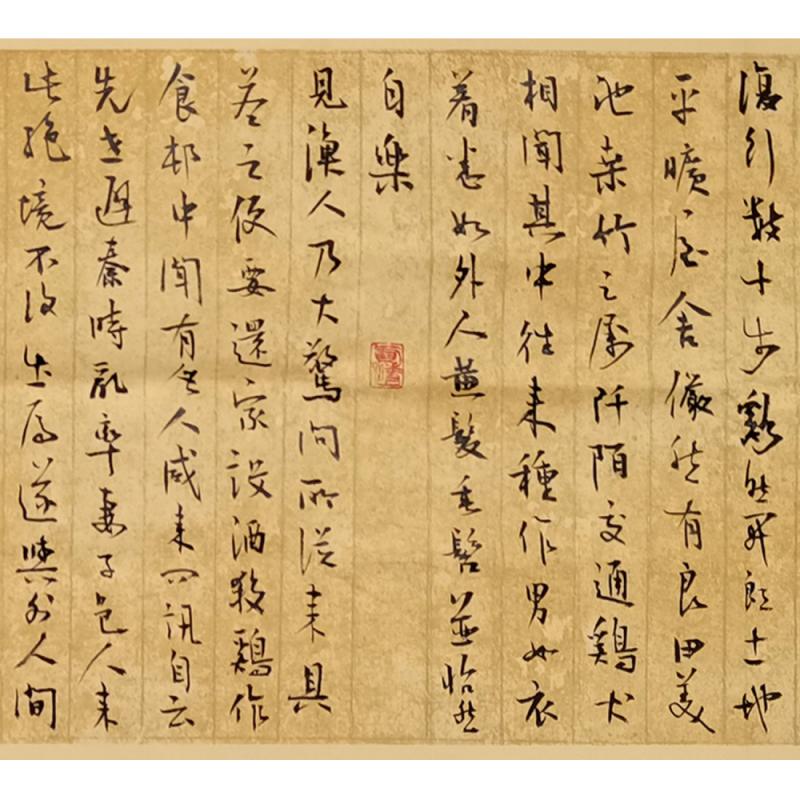 復行數十步豁然開朗土地
平曠屋舍儼然有良田美
池桑竹之屬阡陌交通鷄犬
相聞其中往來種作男女衣
着悉如外人黃髮垂髫並怡然
自樂
見漁人乃大驚問所從來具
答之便要還家設酒殺鷄作
食邨中聞有此人咸來問訊自云
先世避秦時亂率妻子邑人來
此絕境不復出焉遂與外人間